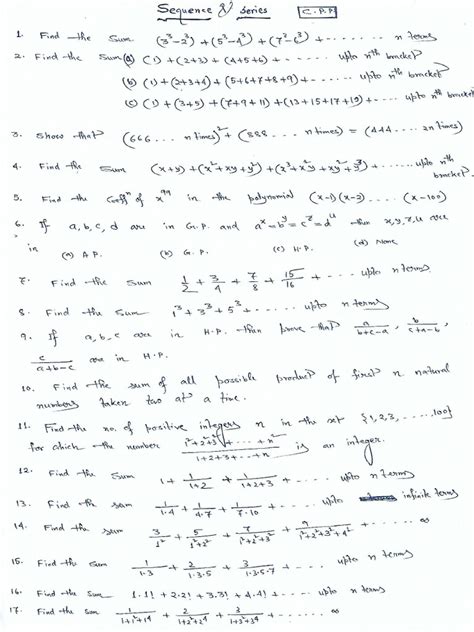 Sequence & Series C.P.P.
1. Find the Sum (3³-2³)+(5³-4³)+(7³-6³)+...... n terms
2. Find the Sum (a) (1)+(2+3)+(4+5+6)+...... upto nth bracket
(b) (1)+(2+3+4)+(5+6+7+8+9)+..... upto nth bracket
(c) (1)+(3+5)+(7+9+11)+(13+15+17+19)+... upto nth bracket
3. Show that (666...n times)²+(888...n times) = (444....2n times)
4. Find the Sum (x+y)+(x²+xy+y²)+(x³+x²y+xy²+y³)+.....upto nth bracket.
5. Find the Coeffⁿ of x⁹⁹ in the polynomial (x-1)(x-2)....(x-100)
6. If a, b, c, d are in G.P. and aˣ=bʸ=cᶻ=dᵘ then x,y,z,u are
in (a) A.P. (b) G.P. (c) H.P. (d) None
7. Find the Sum 1/2 + 3/4 + 7/8 + 15/16 + ..... upto n terms.
8. Find the Sum 1³+3³+5³+...... upto n terms
9. If a, b, c are in H.P. then prove that a/(b+c-a), b/(c+a-b),
c/(a+b-c) are in H.P.
10. Find the sum of all possible product of first n natural
numbers taken two at a time.
11. Find the no. of positive integers n in the set {1,2,3,......100}
for which the number (1²+2²+3²+...+n²)/(1+2+3+...+n) is an integer.
12. Find the Sum 1 + 1/(1+2) + 1/(1+2+3) + ..... upto n terms
13. Find the sum 1/1.4 + 1/4.7 + 1/7.10 + ..... upto infinite terms
14. Find the sum 3/1² + 5/(1²+2²) + 7/(1²+2²+3²) + 9/(1²+2²+3²+4²) + ..... ∞
15. Find the Sum 1/1.3 + 2/1.3.5 + 3/1.3.5.7 + ..... upto n terms
16. Find the Sum 1.1!+2.2!+3.3!+4.4!+..... upto n terms
17. Find the Sum 1/(1+1²+1⁴) + 2/(1+2²+2⁴) + 3/(1+3²+3⁴) + ..... ∞